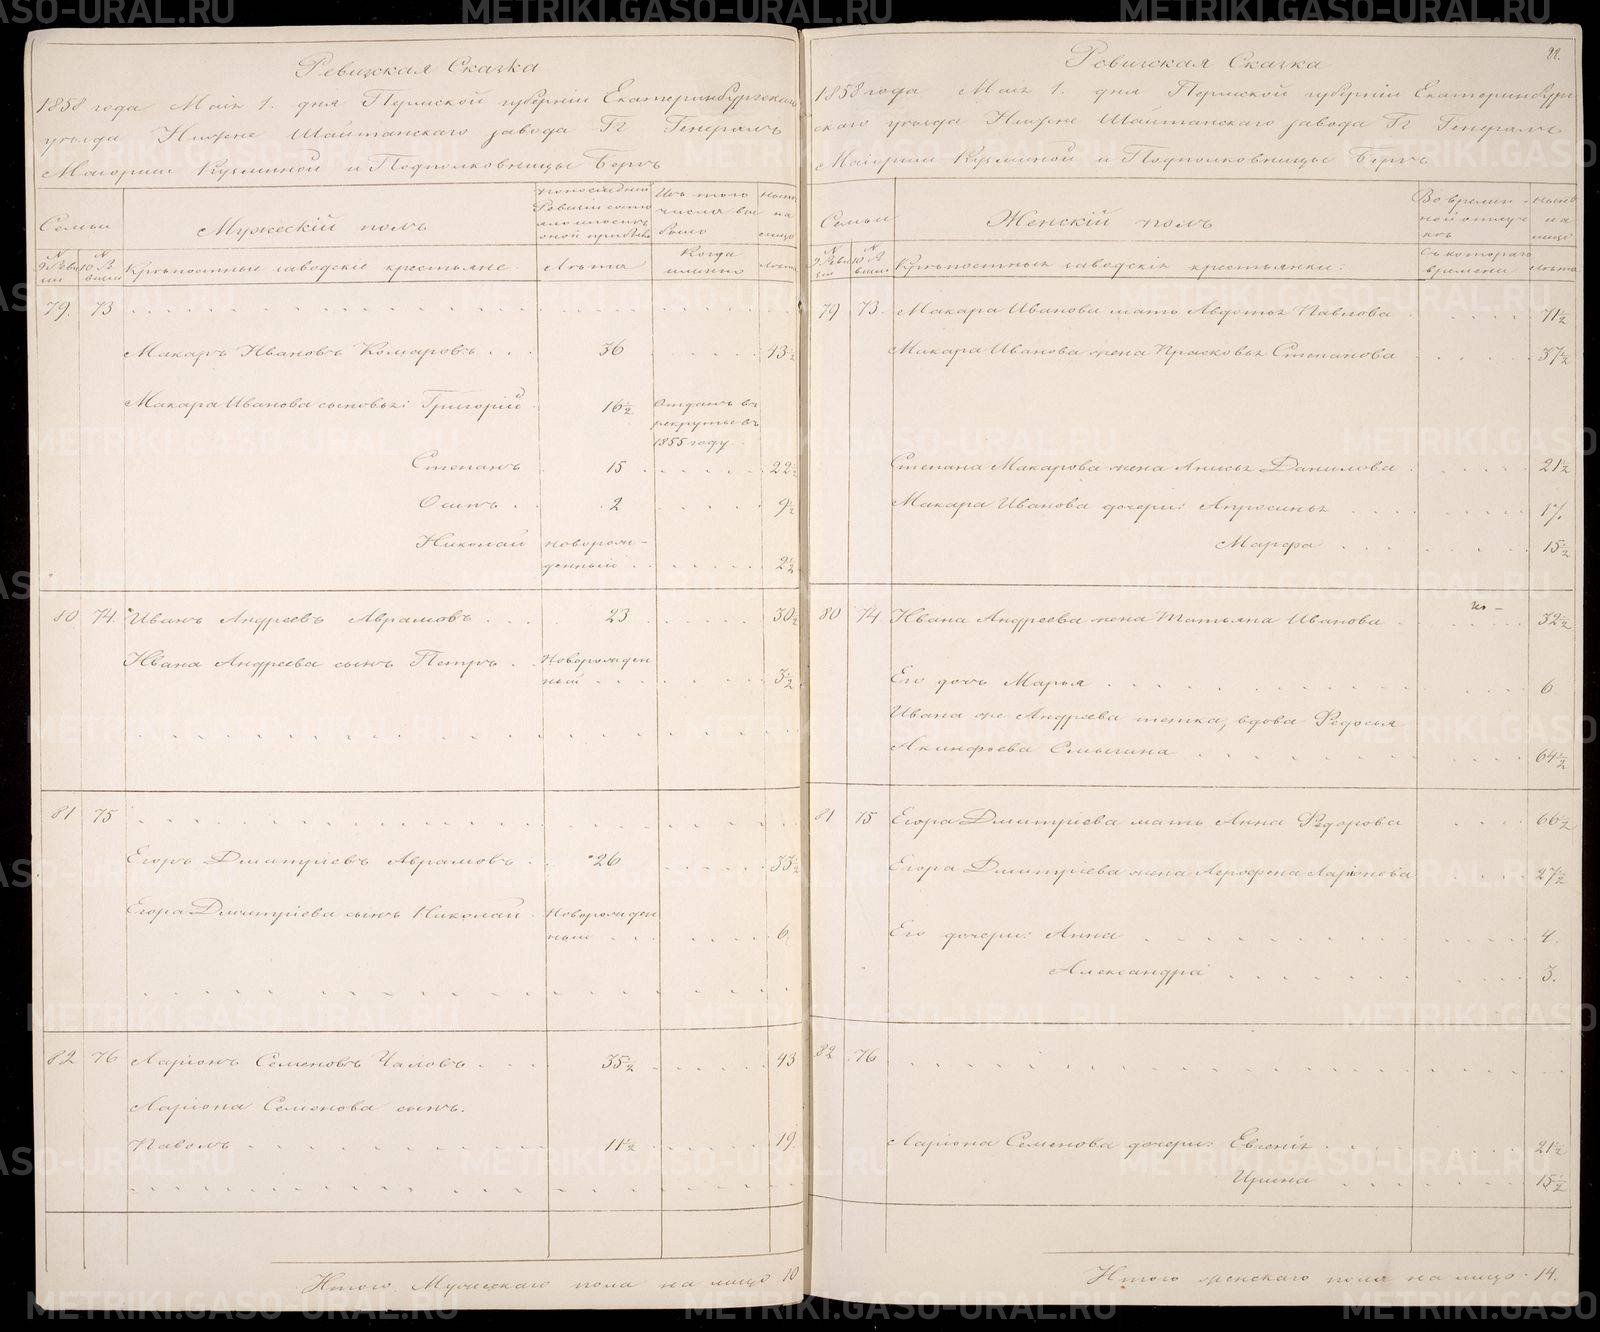 Ревизская Сказка
1858 года Маія 1. дня Пермской губерніи Екатеринбургскаго
уѣзда Нижне Шайтанскаго завода Гг Генералъ
Маіорши Кузминой и Подполковницы Бергъ
Семьи
Мужескій полъ
Изъ того числа выбыло
Нынѣ на лицо
№ 9 Ревизіи
№ 10 Ревизіи
Крѣпостные заводскіе крестьяне
Лѣта
Когда именно
Лѣта
79. 73
Макаръ Ивановъ Комаровъ 36 43½
Макара Иванова сыновья: Григорій 16½ Отданъ въ
рекруты въ
1855 году
Степанъ 15 22½
Осипъ 2 9½
Николай новорож-
денный 2½
80. 74. Иванъ Андреевъ Аврамовъ 23 30½
Ивана Андреева сынъ Петръ Новорожден
ный 3½
81 75
Егоръ Дмитріевъ Аврамовъ 26 33½
Егора Дмитріева сынъ Николай Новорожден
ный 6
82 76 Ларіонъ Семеновъ Чаловъ 35½ 43
Ларіона Семенова сынъ.
Павелъ 11½ 19
Итого Мужескаго пола на лицо 10
Ревизская Сказка
1858 года Маія 1. дня Пермской губерніи Екатеринбург-
скаго уѣзда Нижне Шайтанскаго завода Гг Генералъ
Маіорши Кузминой и Подполковницы Бергъ
Семьи
Женскій полъ
Во времен-
ной отлуч-
кѣ
Нынѣ
на
лицо
№ 9 Ревизіи
№ 10 Ревизіи
Крѣпостныя заводскія крестьянки:
Съ котораго
времени
Лѣта
79 73. Макара Иванова мать Авдотья Павлова 71½
Макара Иванова жена Прасковья Степанова 37½
Степана Макарова жена Анисья Данилова 21½
Макара Иванова дочери: Апросинья
Марфа 15½
80 74 Ивана Андреева жена Татьяна Иванова 32½
Его дочь Марья 6
Ивана же Андреева тетка, вдова Федосья
Акинфьева Смыгина 64½
81 75 Егора Дмитріева мать Анна Федорова 66½
Егора Дмитріева жена Агрофена Ларіонова 27½
Его дочери: Анна 4.
Александра 3.
82 76
Ларіона Семенова дочери: Евгенія 21½
Ирина 15½
Итого женскаго пола на лицо 14.
METRIKI.GASO-URAL.RU